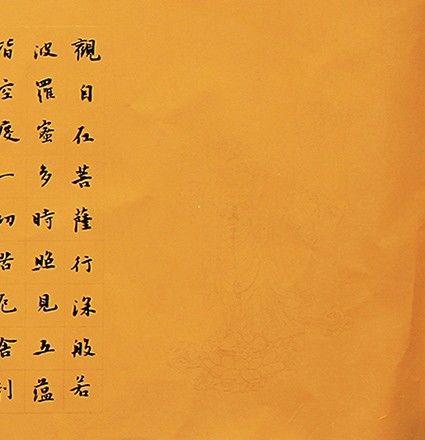 觀自在菩薩行深般若
波羅蜜多時照見五蘊
皆空度一切苦厄舍利